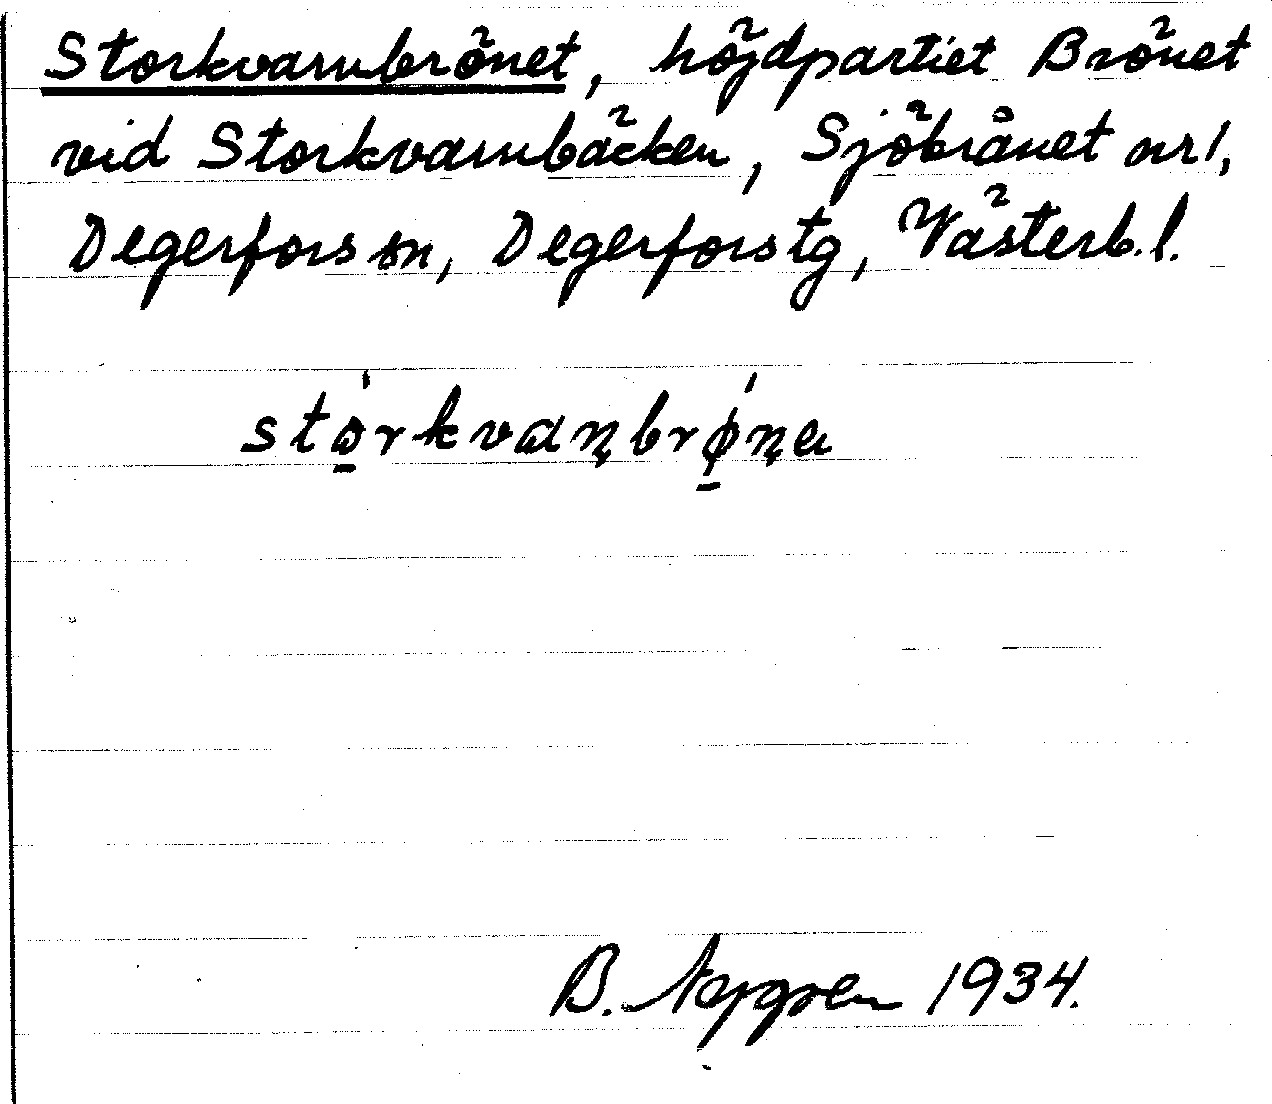 Storkvarnbrönet, höjdpartiet Brönet
vid Storkvarnbäcken, Sjöbrånet nr 1,
Degerfors sn, Degerfors tg, Västerb. l.
stώ̲rkvaṇbrǿ̲ṇa
B. 1934.